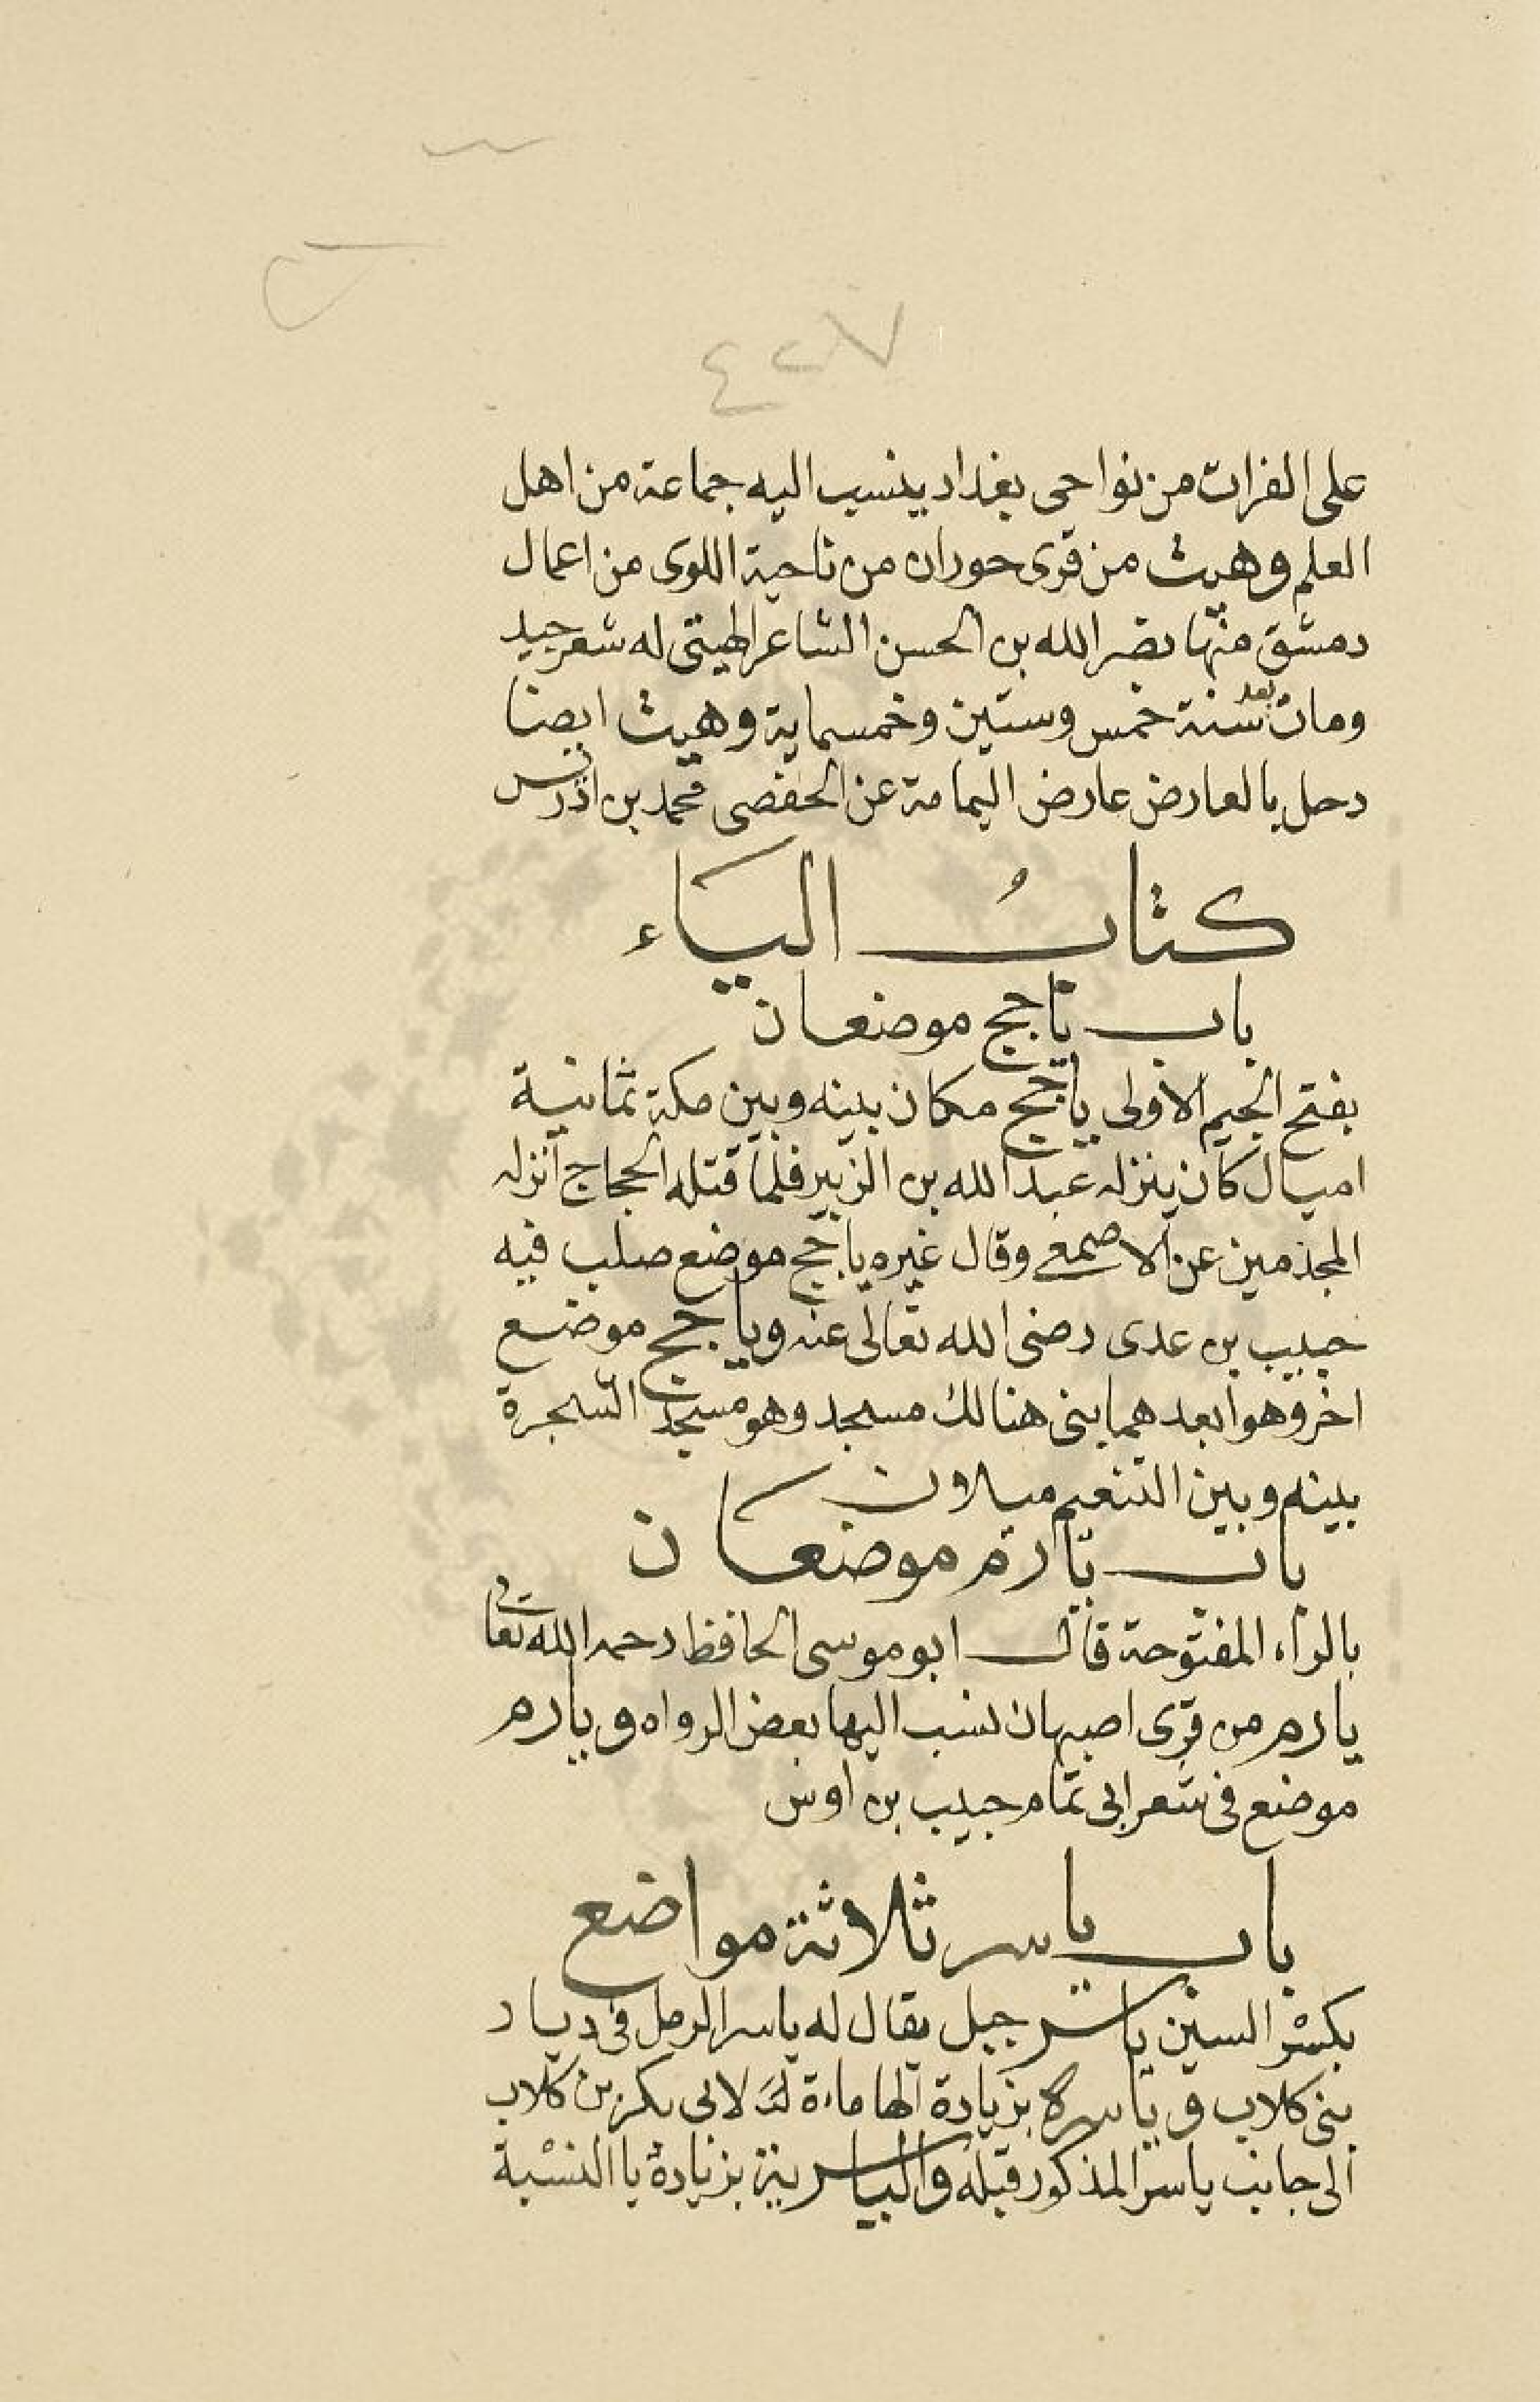 ٤٢٧
على الفرات من نواحى بغداد ينسب اليه جماعة من اهل
العلم وهيت من قرى حوران من ناحية اللوى من اعمال
دمشق منها نصر الله بن الحسن الشاعر الهيتى له شعر جيد
ومات بعد سنة خمس وستين وخمسماية وهيت ايضا
دحل بالعارض عارض اليمامة عن الحفصى محمد بن ادريس
كتابُ الياء
باب ياجج موضعان
بفتح الجيم الاولى ياجج مكان بينه وبين مكة ثمانية
اميال كان ينزله عبد الله بن الزبير فلما قتله الحجاج انزله
المجذمين عن الاصمعى وقال غيره ياجج موضع صلب فيه
خبيب بن عدى رضى الله تعالى عنه وياجج موضع
اخر وهو ابعدهما بنى هنالك مسجد وهو مسجد الشجرة
بينه وبين التنعيم ميلان
باب يارم موضعان
بالراء المفتوحة قال ابو موسى الحافظ رحمه الله تعا
يارم من قرى اصبهان نسب اليها بعض الرواه ويارم
موضع فى شعر ابى تمام حبيب بن اوس
باب ياسر ثلاثة مواضع
بكسر السين ياسر جبل يقال له ياسر الرمل فى ديار
بنى كلاب وياسرة بزيادة الها ماءة لابى بكر بن كلاب
الى جانب ياسر المذكور قبله والياسرية بزيادة يا النسبة